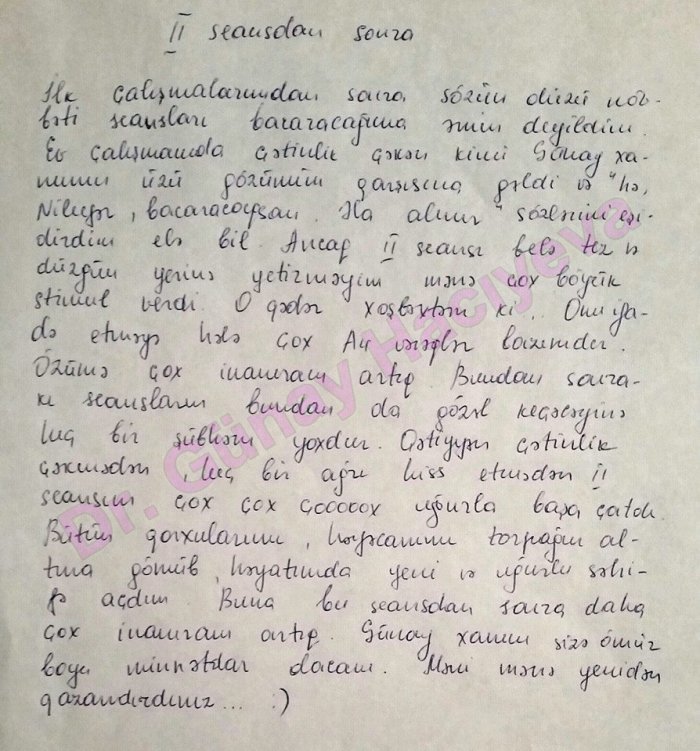 II seansdan sonra
İlk çalışmalarımdan sonra, sözün düzü növ-
bəti seansları bacaracağıma əmin deyildim.
Ev çalışmamda çətinlik çəkən kimi Günay xa-
nımın üzü gözümün qarşısına gəldi və "hə,
Nilufər, bacaracaqsan. Ha alınır" sözlərini eşi-
dirdim elə bil. Ancaq II seansı belə tez və
düzgün yerinə yetirməyim mənə çox böyük
stimul verdi. O qədər xoşbəxtəm ki.. Onu ifa-
də etməyə hələ çox Ağ vərəqlər lazımdır.
Özümə çox inamıram artıq. Bundan sonra-
kı seansların bundan da gözəl keçəcəyinə
heç bir şübhəm yoxdur. Qətiyyən çətinlik
çəkmədən, heç bir ağrı hiss etmədən II
seansım çox çox çooooox uğurla başa çatdı.
Bütün qorxularımı, həyəcanımı torpağın al-
tına gömüb, həyatımda yeni və uğurlu səhi-
fə açdım. Buna bu seansdan sonra daha
çox inamıram artıq. Günay xanım sizə ömür
boyu minnətdar olacam. Məni mənə yenidən
qazandırdınız... :)
Dr. Günay Hacıyeva